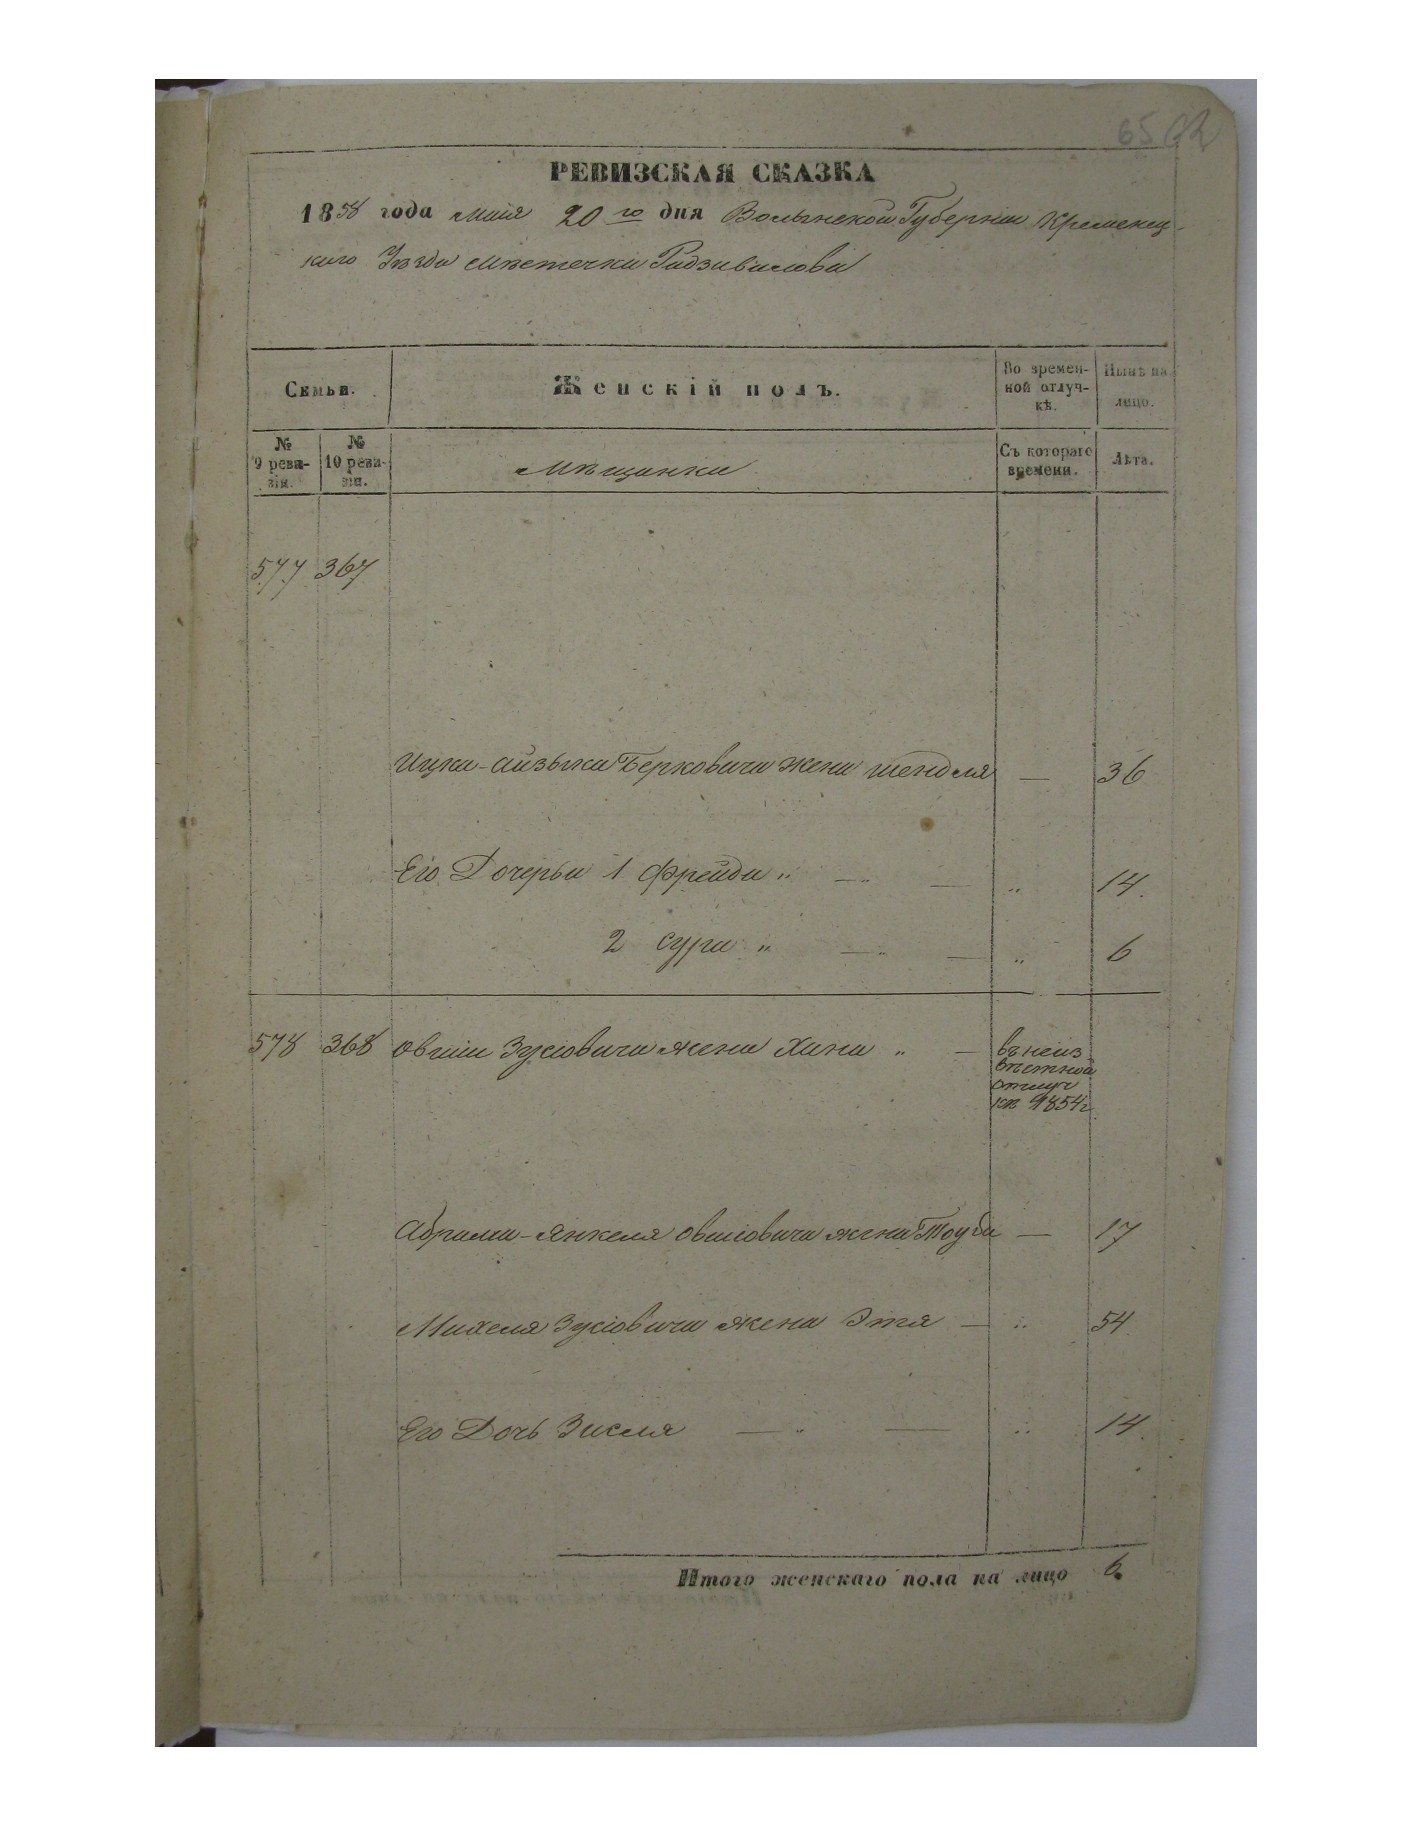 РЕВИЗСКАЯ СКАЗКА
1858 года маія 20го дня Волынской Губерніи Кременец-
каго Уѣзда мѣстечка Радзивилова
Семьи.
Женскій полъ.
Во времен-
ной отлуч-
кѣ.
Нынѣ на
лицо.
№
9 реви-
зіи.
№
10 реви-
зіи.
Мѣщанки
Съ котораго
времени.
Лѣта.
577 367
Ицка-Айзыка Берковича жена Шендля — 36
Его Дочерьи 1 Фрейда " — " — " 14.
2 Сура " — " — " 6
578 368 Овшіи Зусіовича жена Хана " — въ неиз
вѣстной
отлуч
кѣ 1854 г
Абрама-Янкеля Овшіовича жена Тоуба — 17
Михеля Зусіовича жена Этя — " 54
Его Дочь Зисля — " — " 14.
Итого женскаго пола на лицо 6.